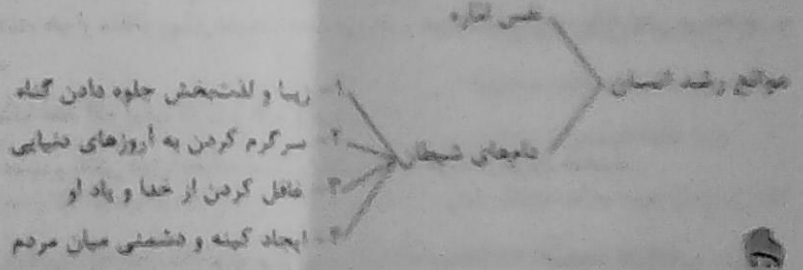 نفس اماره
موانع رشد انسان
دام‌های شیطان
۱- زیبا و لذت‌بخش جلوه دادن گناه
۲- سرگرم کردن به آرزوهای دنیایی
۳- غافل کردن از خدا و یاد او
۴- ایجاد کینه و دشمنی میان مردم